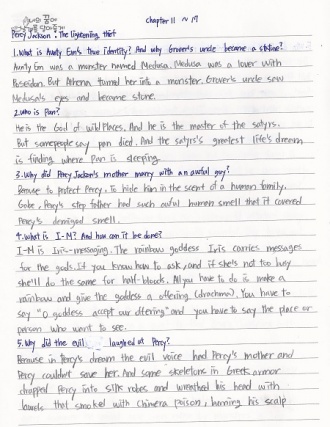 chapter 11 ~ 19
Percy Jackson : The lightening thief
1. What is Aunty Em's true identity? And why Grover's uncle became a statue?
Aunty Em was a monster named Medusa. Medusa was a lover with
Poseidon. But Athena turned her into a monster. Grover's uncle saw
Medusa's eyes and became stone.
2. Who is Pan?
He is the God of wild Places. And he is the master of the satyrs.
But some people say pan died. And the satyrs's greatest life's dream
is finding where Pan is sleeping.
3. Why did Percy Jackson's mother marry with an awful guy?
Because to protect Percy, To hide him in the scent of a human family.
Gabe, Percy's step father had such awful human smell that it covered
Percy's demigod smell.
4. What is I-M? And how can it be done?
I-M is Iris-messaging. The rainbow goddess Iris carries messages
for the gods. If you know how to ask, and if she's not too busy
she'll do the same for half-bloods. All you have to do is make a
rainbow and give the goddess a offering (drachma). You have to
say "O goddess accept our offering" and you have to say the place or
person who want to see.
5. Why did the evil laughed at Percy?
Because in Percy's dream the evil voice had Percy's mother and
Percy couldn't save her. And some skeletons in Greek armor
drapped Percy into silk robes and wreathed his head with
laurels that smoked with Chimera poison, burning his scalp